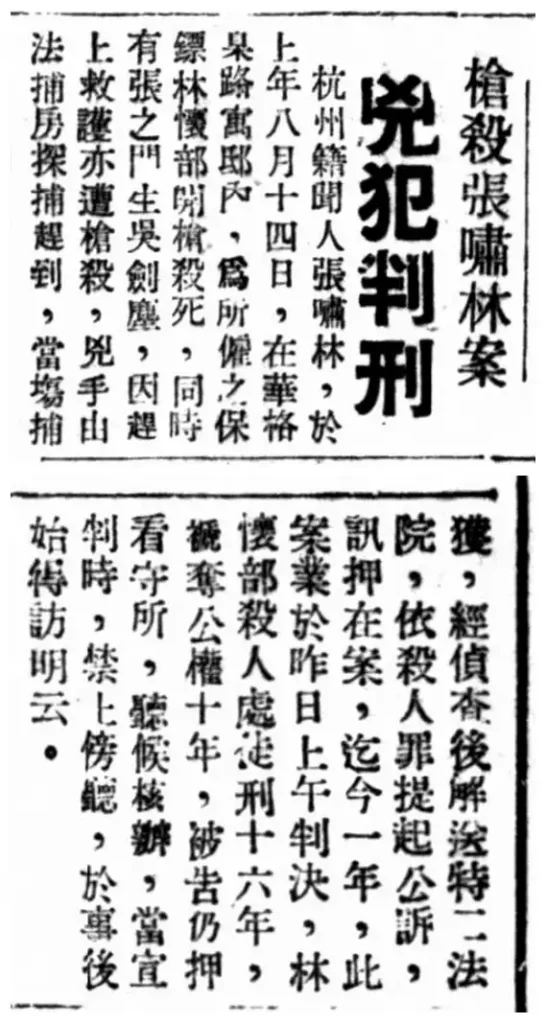 槍殺張嘯林案
兇犯判刑
杭州籍聞人張嘯林，於
上年八月十四日，在華格
臬路寓邸內，爲所僱之保
鏢林懷部開槍殺死，同時
有張之門生吳劍塵，因趕
上救護亦遭槍殺，兇手山
法捕房探捕趕到，當塲捕
獲，經偵查後解送特二法
院，依殺人罪提起公訴，
訊押在案，迄今一年，此
案業於昨日上午判決，林
懷部殺人處徒刑十六年，
褫奪公權十年，被告仍押
看守所，聽候核辦，當宣
判時，禁止傍聽，於事後
始得訪明云。